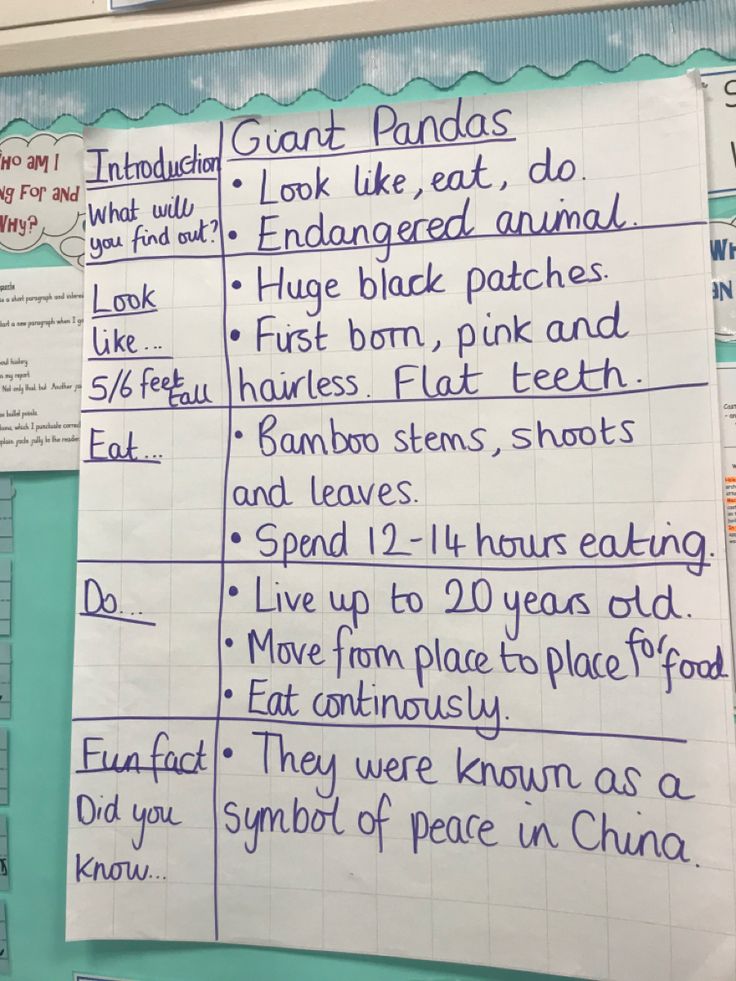 Giant Pandas
Introduction
What will
you find out?
• Look like, eat, do.
• Endangered animal.
Look
like...
5/6 feet
tall
• Huge black patches.
• First born, pink and
hairless. Flat teeth.
Eat...
• Bamboo stems, shoots
and leaves.
• Spend 12-14 hours eating.
Do...
• Live up to 20 years old.
• Move from place to place for food
• Eat continously.
Fun fact
Did you
know...
• They were known as a
symbol of peace in China.
HO AM I
NG FOR AND
WHY?